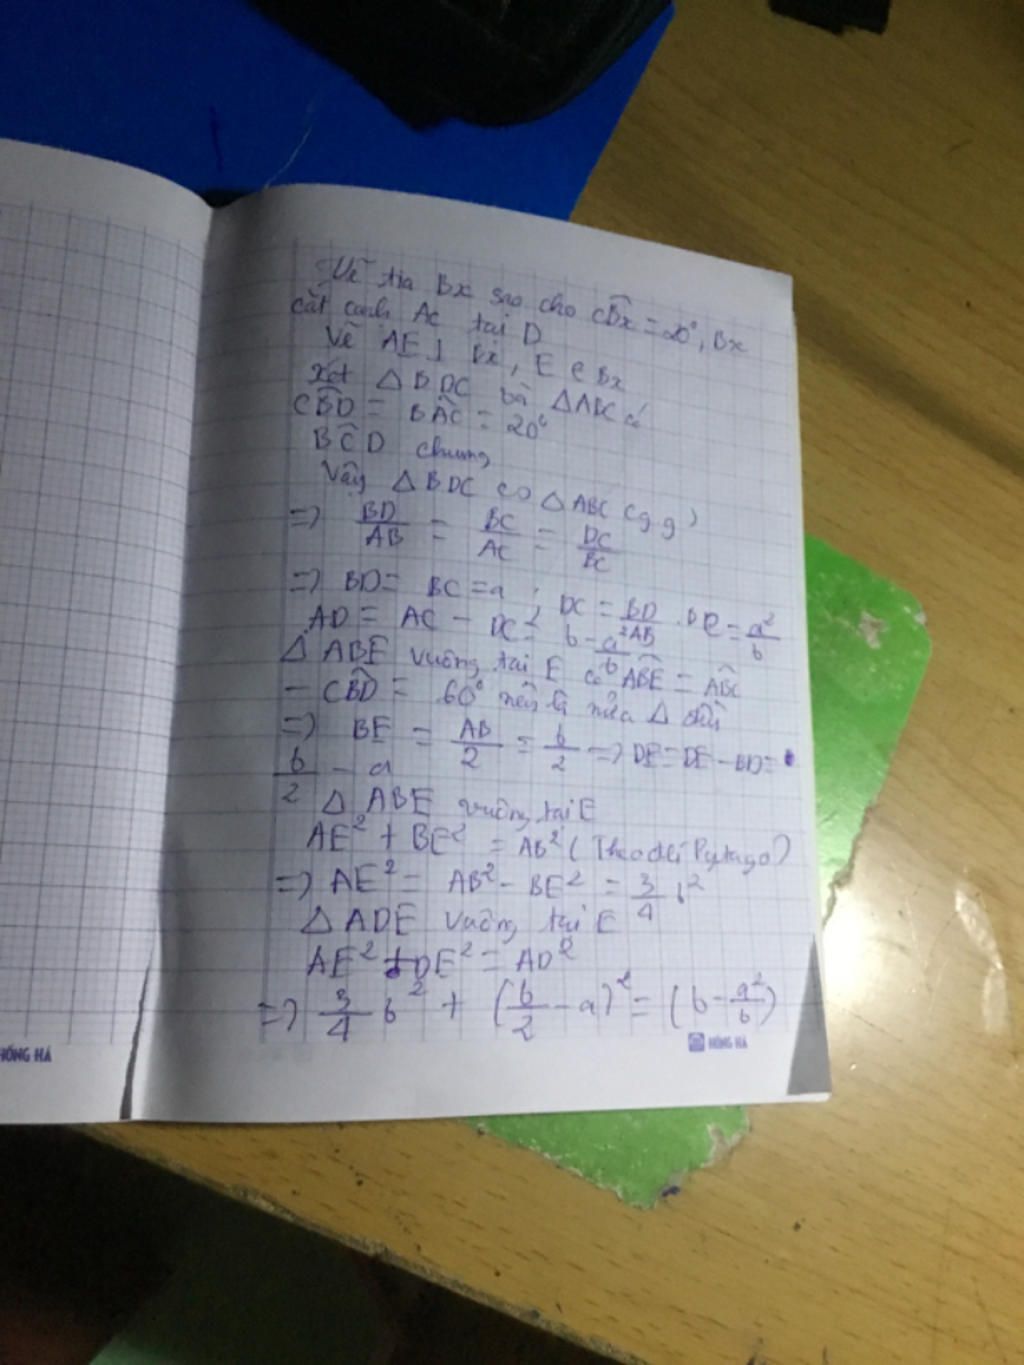 Vẽ tia Bx sao cho CBx = 20°, Bx
cắt cạnh AC tại D
Vẽ AE ⊥ Bx, E ∈ Bx
Xét △BDC và △ABC có
CBD = BAC = 20°
BCD chung
Vậy △BDC ∽ △ABC (g.g)
=> BD/AB = BC/AC = DC/BC
=> BD = BC = a ; DC = BD/AB . BC = a²/b
AD = AC - DC = b - a²/b
△ABE vuông tại E có ABE = ABC
- CBD = 60° nên là nửa △ đều
=> BE = AB/2 = b/2 => DE = DE - BD =
b/2 - a
△ABE vuông tại E
AE² + BE² = AB² (Theo đlí Pytago)
=> AE² = AB² - BE² = 3/4 b²
△ADE vuông tại E
AE² + DE² = AD²
=> 3/4 b² + (b/2 - a)² = (b - a²/b)
HỒNG HÀ
HỒNG HÀ